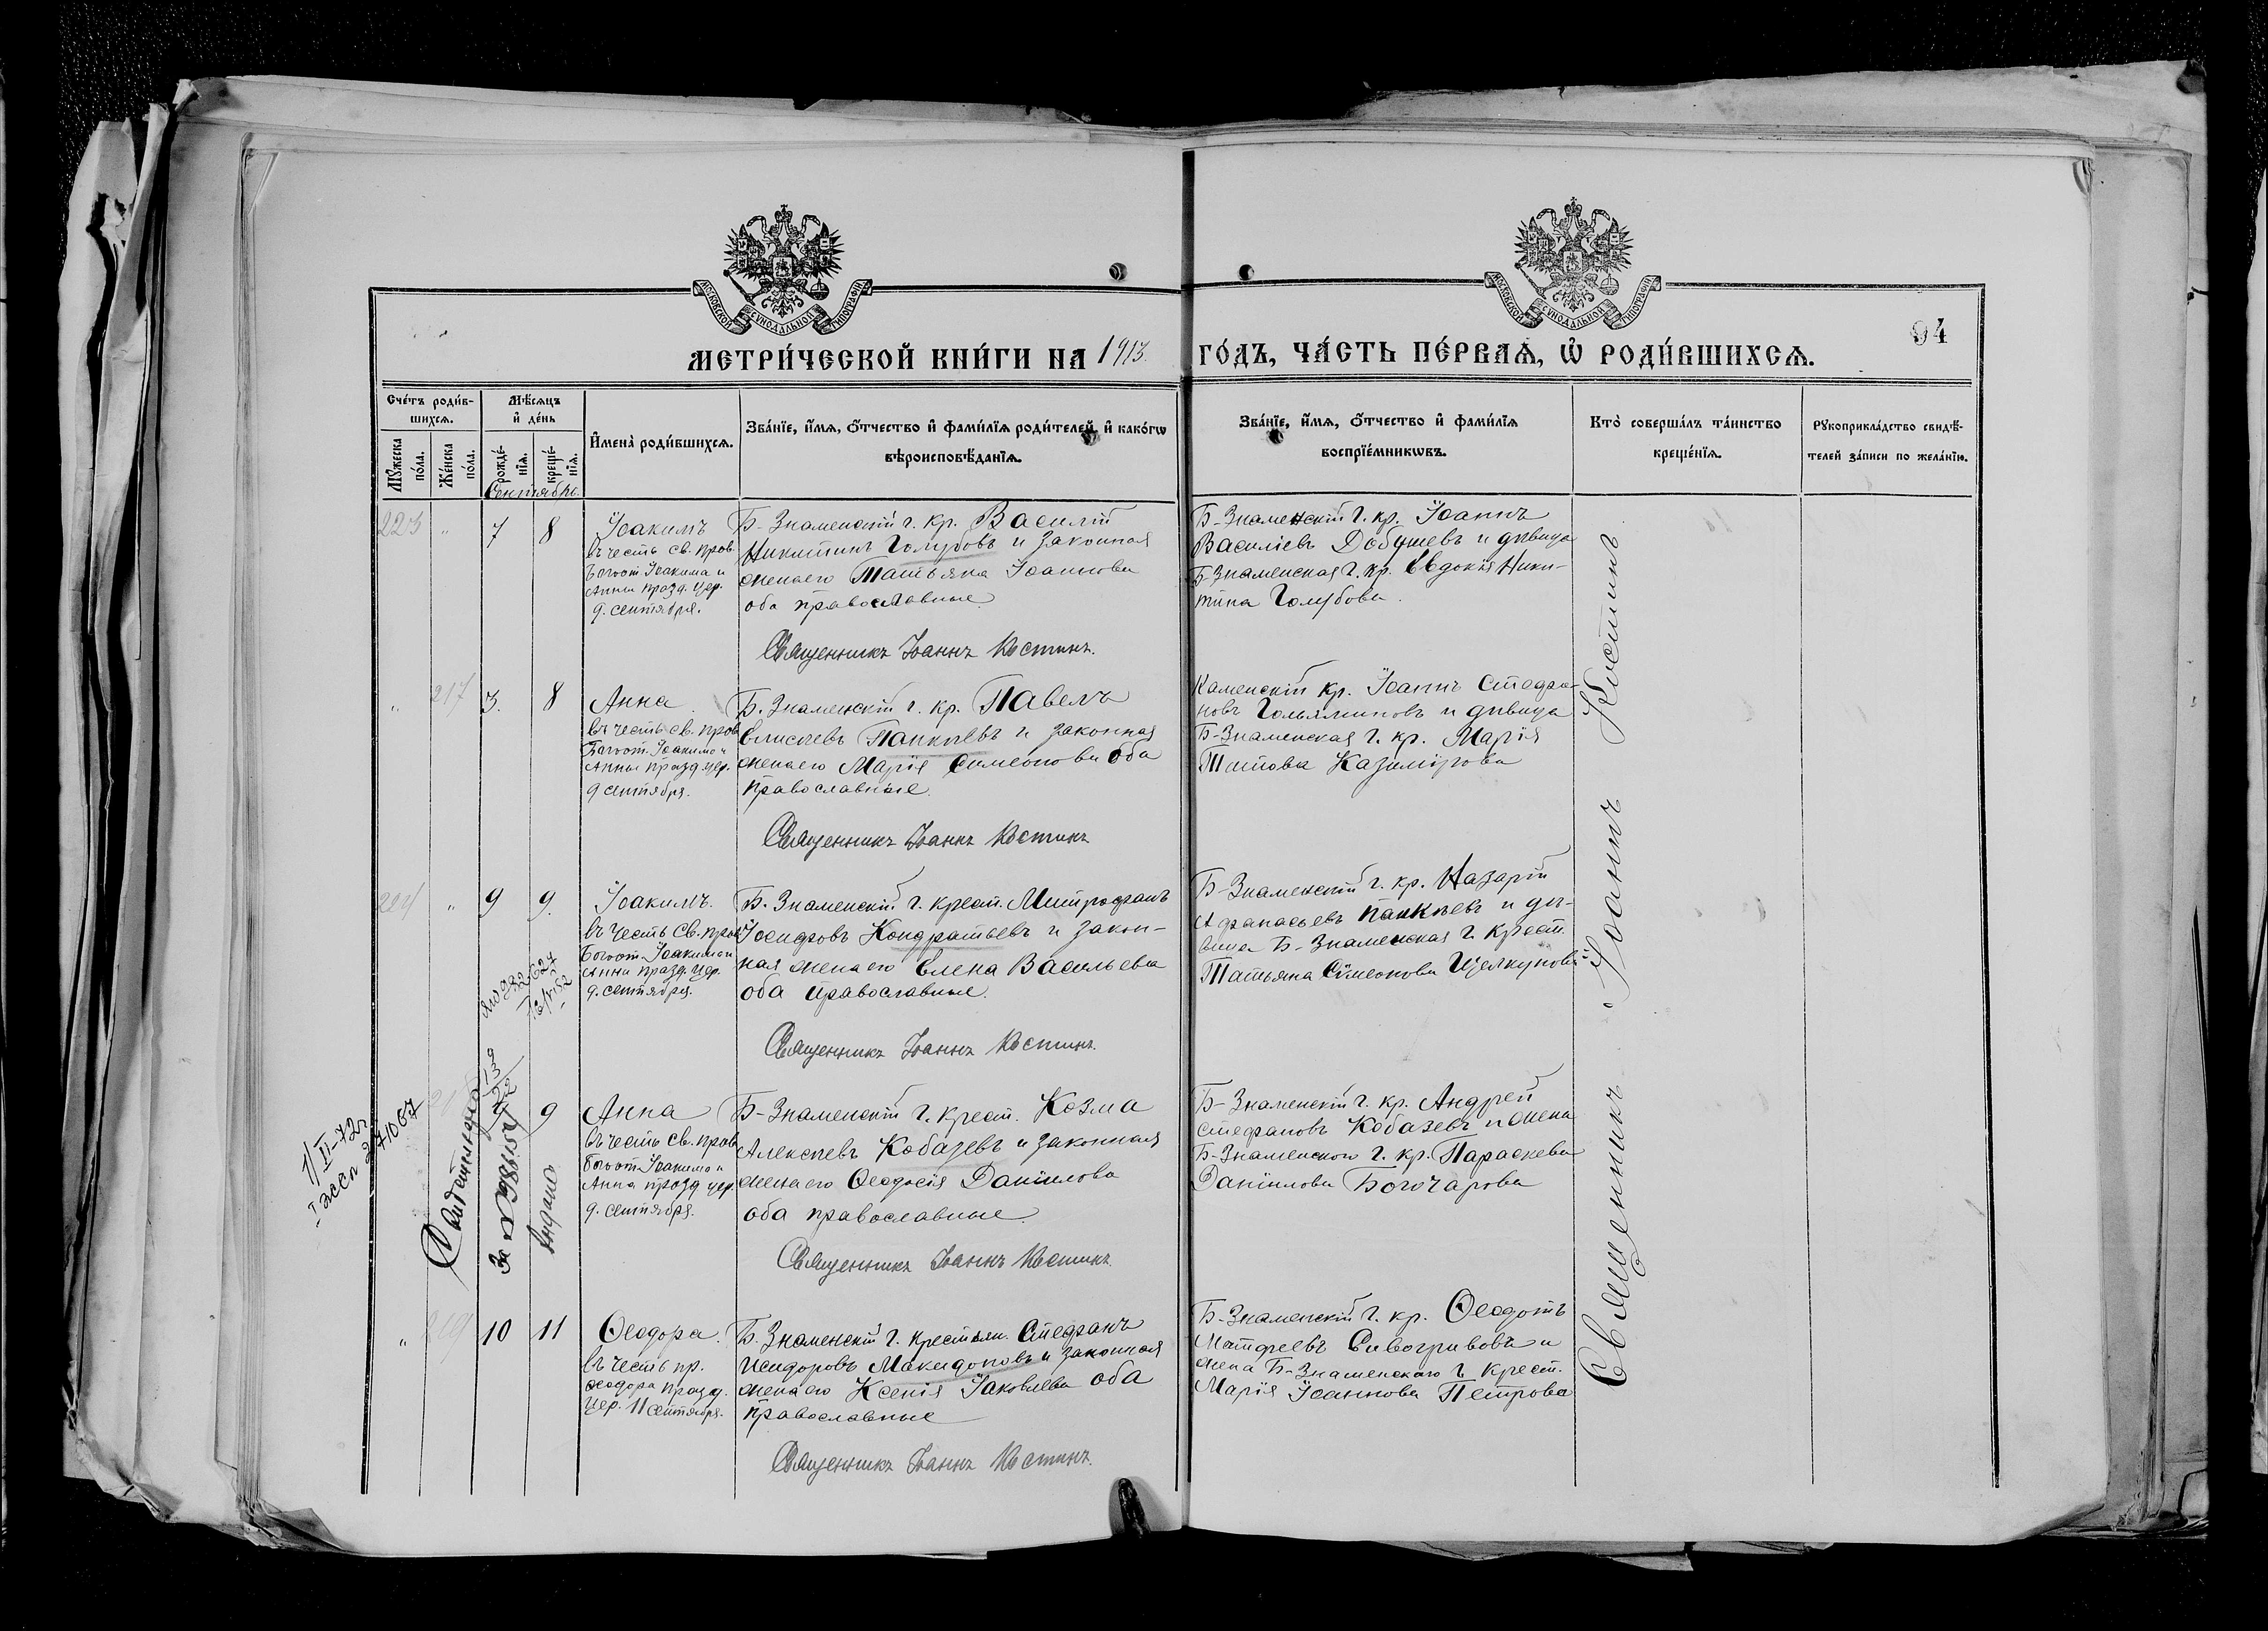 МОСКОВСКОЙ СѴНОДАЛЬНОЙ ТИПОГРАФІИ
МОСКОВСКОЙ СѴНОДАЛЬНОЙ ТИПОГРАФІИ
МЕТРИ́ЧЕСКОЙ КНИ́ГИ НА 1913. ГО́ДЪ, ЧА́СТЬ ПЕ́РВАѦ, Ѡ҆ РОДИ́ВШИХСѦ.
94
Сче́тъ роди́в-
шихсѧ.
Мѣ́сѧцъ
и҆ де́нь
Мꙋ́жеска
по́ла.
Же́нска
по́ла.
рожде́-
нїѧ.
креще́-
нїѧ.
И҆мена̀ роди́вшихсѧ.
Зва́нїе, и҆́мѧ, ѻ҆́тчество и҆ фами́лїѧ роди́телей, и҆ како́гѡ
вѣроисповѣ́данїѧ.
Зва́нїе, и҆́мѧ, ѻ҆́тчество и҆ фами́лїѧ
воспрїе́мникѡвъ.
Кто̀ соверша́лъ та́инство
креще́нїѧ.
Рꙋкоприкла́дство свидѣ́-
телей за́писи по жела́нїю.
Сентябрь.
223 " 7 8
Іоакимъ
въ честь св. прав.
Богоот. Іоакима и
Анны празд. цер.
9. сентября.
Б-Знаменскій г. кр. Василій
Никитинъ Голубовъ и законная
жена его Татьяна Іоаннова
оба православные.
Священникъ Іоаннъ Костинъ.
Б-Знаменскій г. кр. Іоаннъ
Василіевъ Добушевъ и дѣвица
Б-Знаменская г. кр. Евдокія Ники-
тина Голубова.
" 217 3. 8
Анна
въ честь св. прав.
Богоот. Іоакима и
Анны празд. цер.
9 сентября.
Б. Знаменскій г. кр. Павелъ
Елисѣевъ Панкѣевъ и законная
жена его Марія Симеонова оба
православные.
Священникъ Іоаннъ Костинъ
Каменскій кр. Іоаннъ Стефа-
новъ Гольяминовъ и дѣвица
Б-Знаменская г. кр. Марія
Титова Казимірова
224 " 9 9.
Іоакимъ.
въ честь Св. прав.
Богоот. Іоакима и
Анны празд. цер.
9. сентября.
Б. Знаменскій г. крест. Митрофанъ
Іосифовъ Кондратьевъ и закон-
ная жена его Елена Васильева
оба православные.
Священникъ Іоаннъ Костинъ.
Б-Знаменскій г. кр. Назарій
Афанасьевъ Панкѣевъ и дѣ-
вица Б-Знаменская г. крест.
Татьяна Симеонова Щелкунова
9
Анна
въ честь Св. прав.
Богоот. Іоакима и
Анна празд цер.
9. сентября.
Б-Знаменскій г. крест. Козма
Алексѣевъ Кобазевъ и законная
жена его Ѳеодосія Даніилова
оба православные.
Священникъ Іоаннъ Костинъ.
Б-Знаменскій г. кр. Андрей
Стефановъ Кобазевъ и жена
Б-Знаменского г. кр. Параскева
Даніилова Богочарова
" 219 10 11
Ѳеодора.
въ честь пр.
Ѳеодора празд.
цер. 11 сентября.
Б. Знаменскій г. крестьян. Стефанъ
Исидоровъ Македоновъ и законная
жена его Ксенія Іаковлева оба
православные
Священникъ Іоаннъ Костинъ.
Б-Знаменскій г. кр. Ѳеодотъ
Матфеевъ Сивогривовъ и
жена Б-Знаменскаго г. крест.
Марія Іоаннова Петрова
Священникъ Іоаннъ Костинъ
Выдано